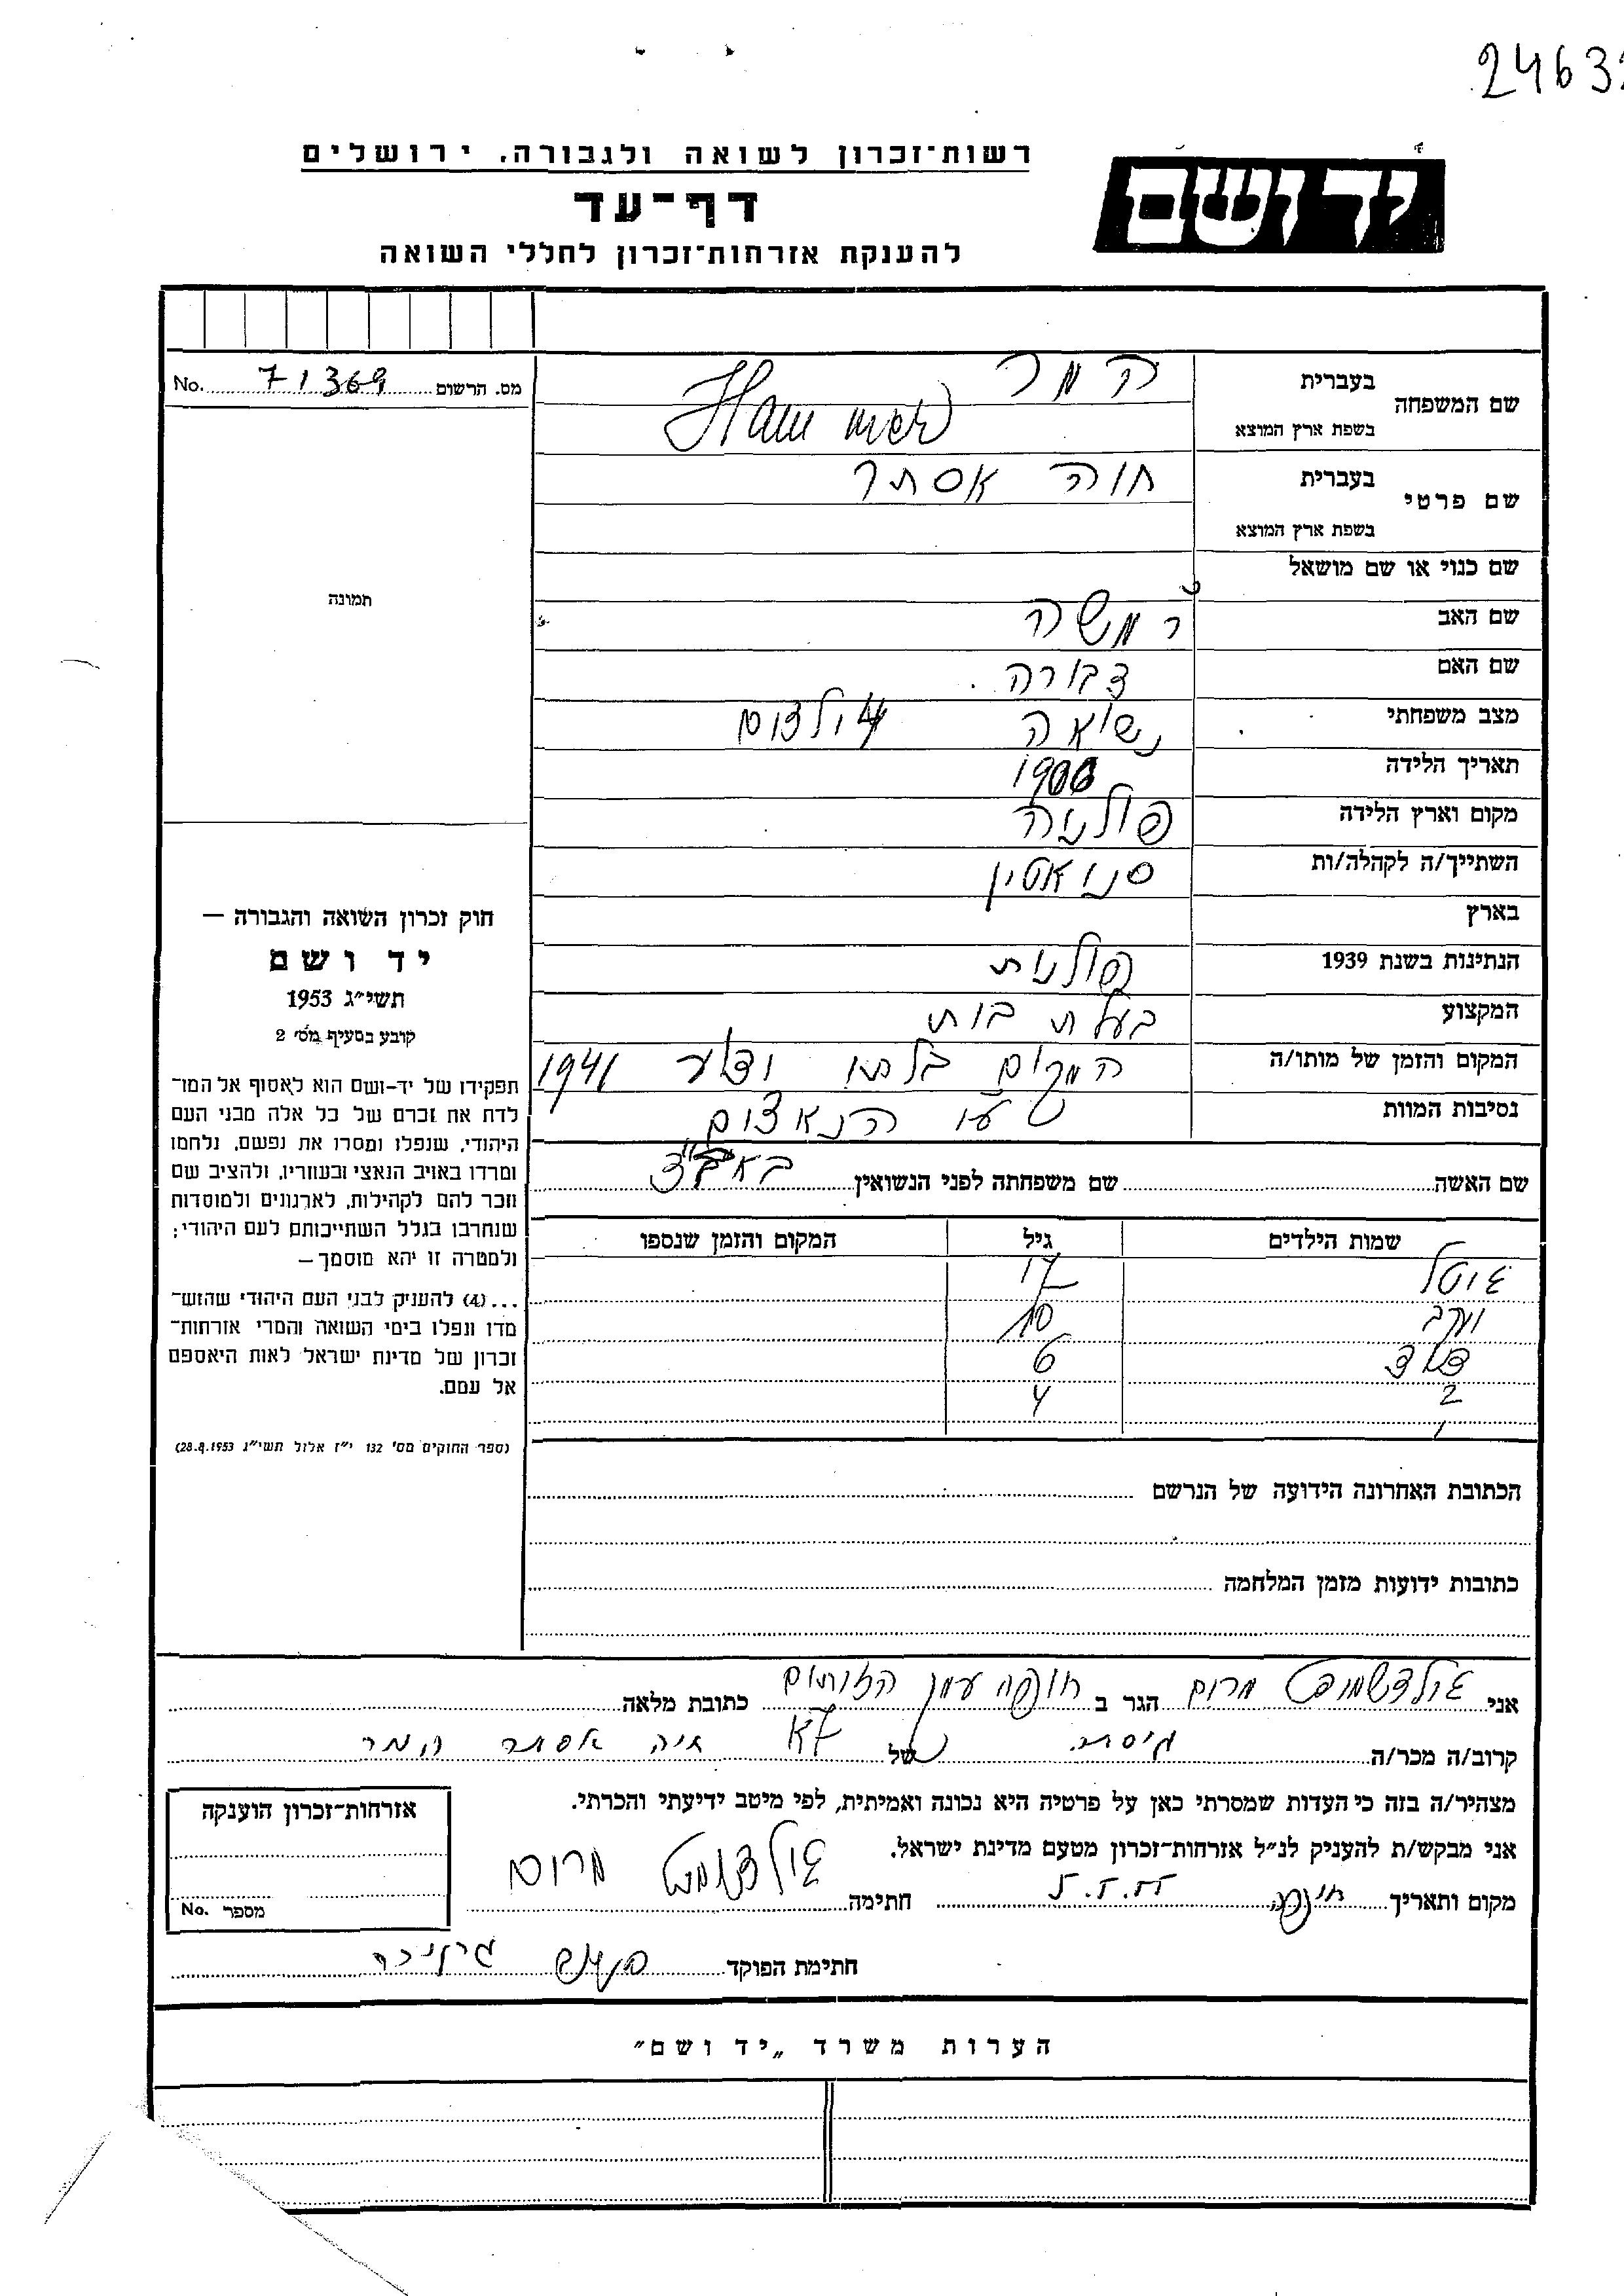 24632
רשות־זכרון לשואה ולגבורה, ירושלים
יד ושם
דף־עד
להענקת אזרחות־זכרון לחללי השואה
מס. הרשום 71369 No.
שם המשפחה
בעברית המר
בשפת ארץ המוצא Hammer
שם פרטי
בעברית חוה אסתר
בשפת ארץ המוצא
שם כנוי או שם מושאל
תמונה
שם האב ר משה
שם האם דבורה
מצב משפחתי נשואה 4 ילדים
תאריך הלידה 1906
מקום וארץ הלידה פולניה
השתייך/ה לקהלה/ות סניאטין
בארץ
הנתינות בשנת 1939 פולנית
המקצוע בעלת בית
המקום והזמן של מותו/ה המקום בלתי ידוע 1941
נסיבות המוות ע״י הנאצים
שם האשה שם משפחתה לפני הנשואין
שמות הילדים גיל המקום והזמן שנספו
גיטל 17
יעקב 10
דוד 6
4
הכתובת האחרונה הידועה של הנרשם
כתובות ידועות מזמן המלחמה
חוק זכרון השואה והגבורה —
יד ושם
תשי״ג 1953
קובע בסעיף מס׳ 2
תפקידו של יד־ושם הוא לאסוף אל המו־
לדת את זכרם של כל אלה מבני העם
היהודי, שנפלו ומסרו את נפשם, נלחמו
ומרדו באויב הנאצי ובעוזריו, ולהציב שם
וזכר להם לקהילות, לארגונים ולמוסדות
שנחרבו בגלל השתייכותם לעם היהודי;
ולמטרה זו יהא מוסמך—
...(4) להעניק לבני העם היהודי שהוש־
מדו ונפלו בימי השואה והמרי אזרחות־
זכרון של מדינת ישראל לאות היאספם
אל עמם.
(ספר החוקים מס׳ 132 י״ז אלול תשי״ג 28.8.1953)
אני גולדשמידט מרים הגר ב חיפה עמק הזיתים כתובת מלאה
קרוב/ה מכר/ה גיסה של חוה אסתר המר
מצהיר/ה בזה כי העדות שמסרתי כאן על פרטיה היא נכונה ואמיתית, לפי מיטב ידיעתי והכרתי.
אני מבקש/ת להעניק לנ״ל אזרחות־זכרון מטעם מדינת ישראל.
מקום ותאריך חיפה חתימה גולדשמידט מרים
חתימת הפוקד
אזרחות־זכרון הוענקה
מספר No.
הערות משרד „יד ושם״